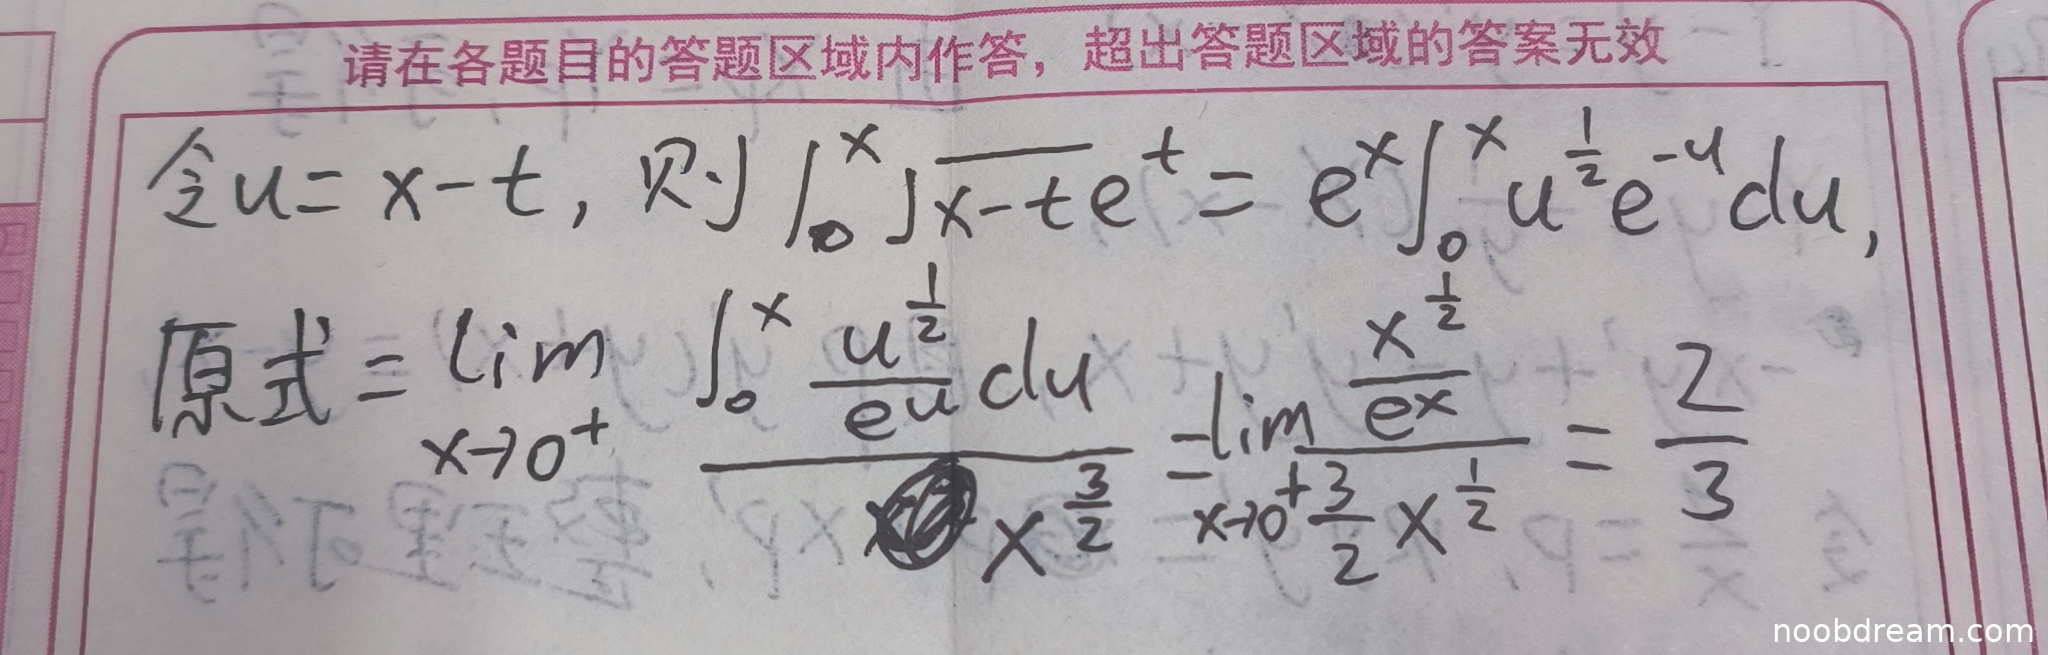 请在各题目的答题区域内作答，超出答题区域的答案无效
令u = x-t, 则 ∫₀ˣ √(x-t) eᵗ = eˣ ∫₀ˣ u^(1/2) e^(-u) du,
原式 = lim_(x→0⁺) (∫₀ˣ u^(1/2)/e^u du) / x^(3/2) = lim_(x→0⁺) (x^(1/2)/eˣ) / (3/2 x^(1/2)) = 2/3
noobdream.com